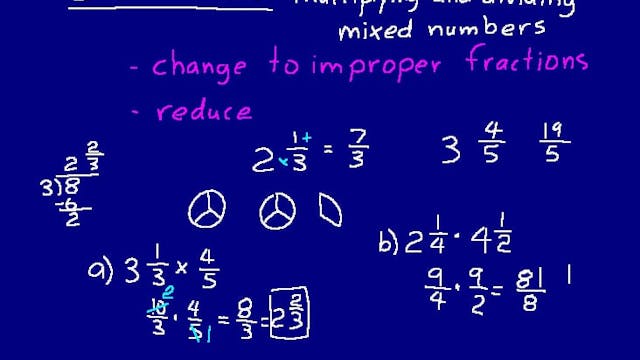 multiplying and dividing
mixed numbers
- change to improper fractions
- reduce
2 1/3 = 7/3
+
×
3 4/5 19/5
2 2/3
3)8
-6
2
a) 3 1/3 × 4/5
10/3 · 4/5 = 8/3 = 2 2/3
2
1
b) 2 1/4 · 4 1/2
9/4 · 9/2 = 81/8 1